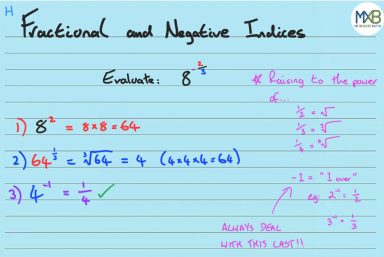 H
Fractional and Negative Indices
MXB
Evaluate: 8^(-2/3)
* Raising to the power of...
1/2 = √
1/3 = ∛
1/4 = ∜
1) 8² = 8×8 = 64
2) 64^(1/3) = ∛64 = 4 (4×4×4=64)
3) 4⁻¹ = 1/4 ✓
-1 = "1 over"
eg: 2⁻¹ = 1/2
3⁻¹ = 1/3
ALWAYS DEAL
WITH THIS LAST!!